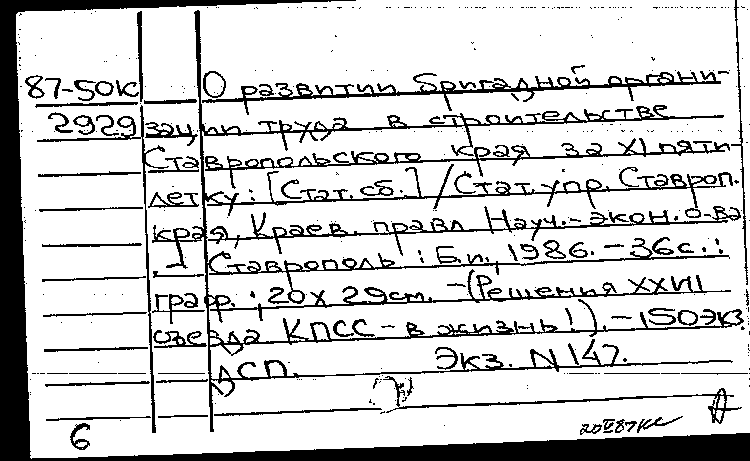 87-50к О развитии бригадной органи-
2929 зации труда в строительстве
Ставропольского края за XI пяти-
летку: [Стат. сб.] / Стат. упр. Ставроп.
края, Краев. правл. Науч.-экон. о-ва
. - Ставрополь : Б.и., 1986. - 36 с. :
граф. ; 20 x 29 см. - (Решения XXVII
съезда КПСС - в жизнь!). - 150 экз.
ДСП. Экз. N 147.
6